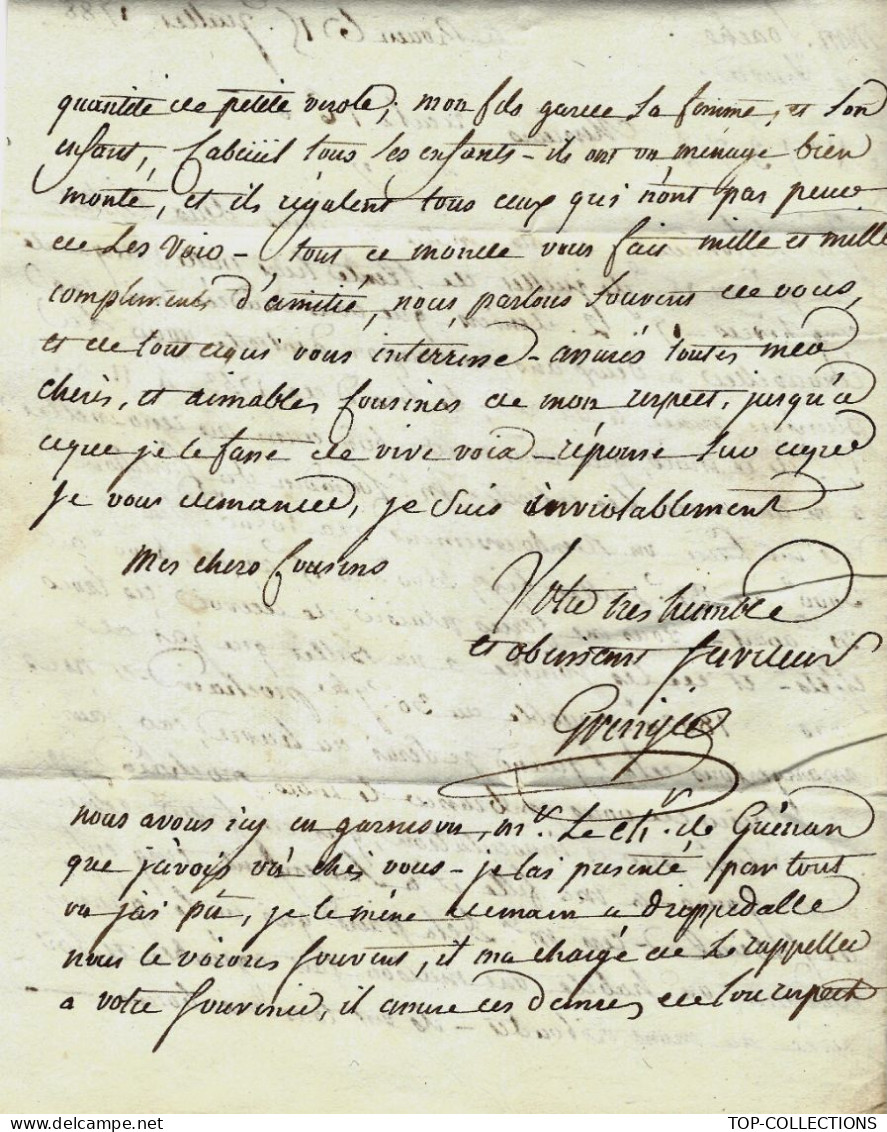 quantité de petite verole; mon fils garde sa femme, et son
enfant, tous les enfants - ils ont un ménage bien
monté, et ils régalent tous ceux qui n'ont pas peur
de les voir - tout ce monde vous fait mille et mille
compliments d'amitié, nous parlons souvent de vous,
et de tout cequi vous intérresse - assurés toutes mes
cherès, et aimables cousines de mon respect, jusqu'a
ceque je le fasse de vive voix - réponse sur ceque
je vous demande, je suis inviolablement
Mes chers cousins
Votre tres humble
et obeissant serviteur
nous avons icy en garnison, mr. Le chr. de Guénan
que j'avois vû chés vous - je l'ai presenté partout
ou j'ai pû, je le mène demain a dieppedalle
nous le voions souvent, il ma chargé de le rappeller
a votre souvenir, il assure ces dames de son respect
TOP-COLLECTIONS